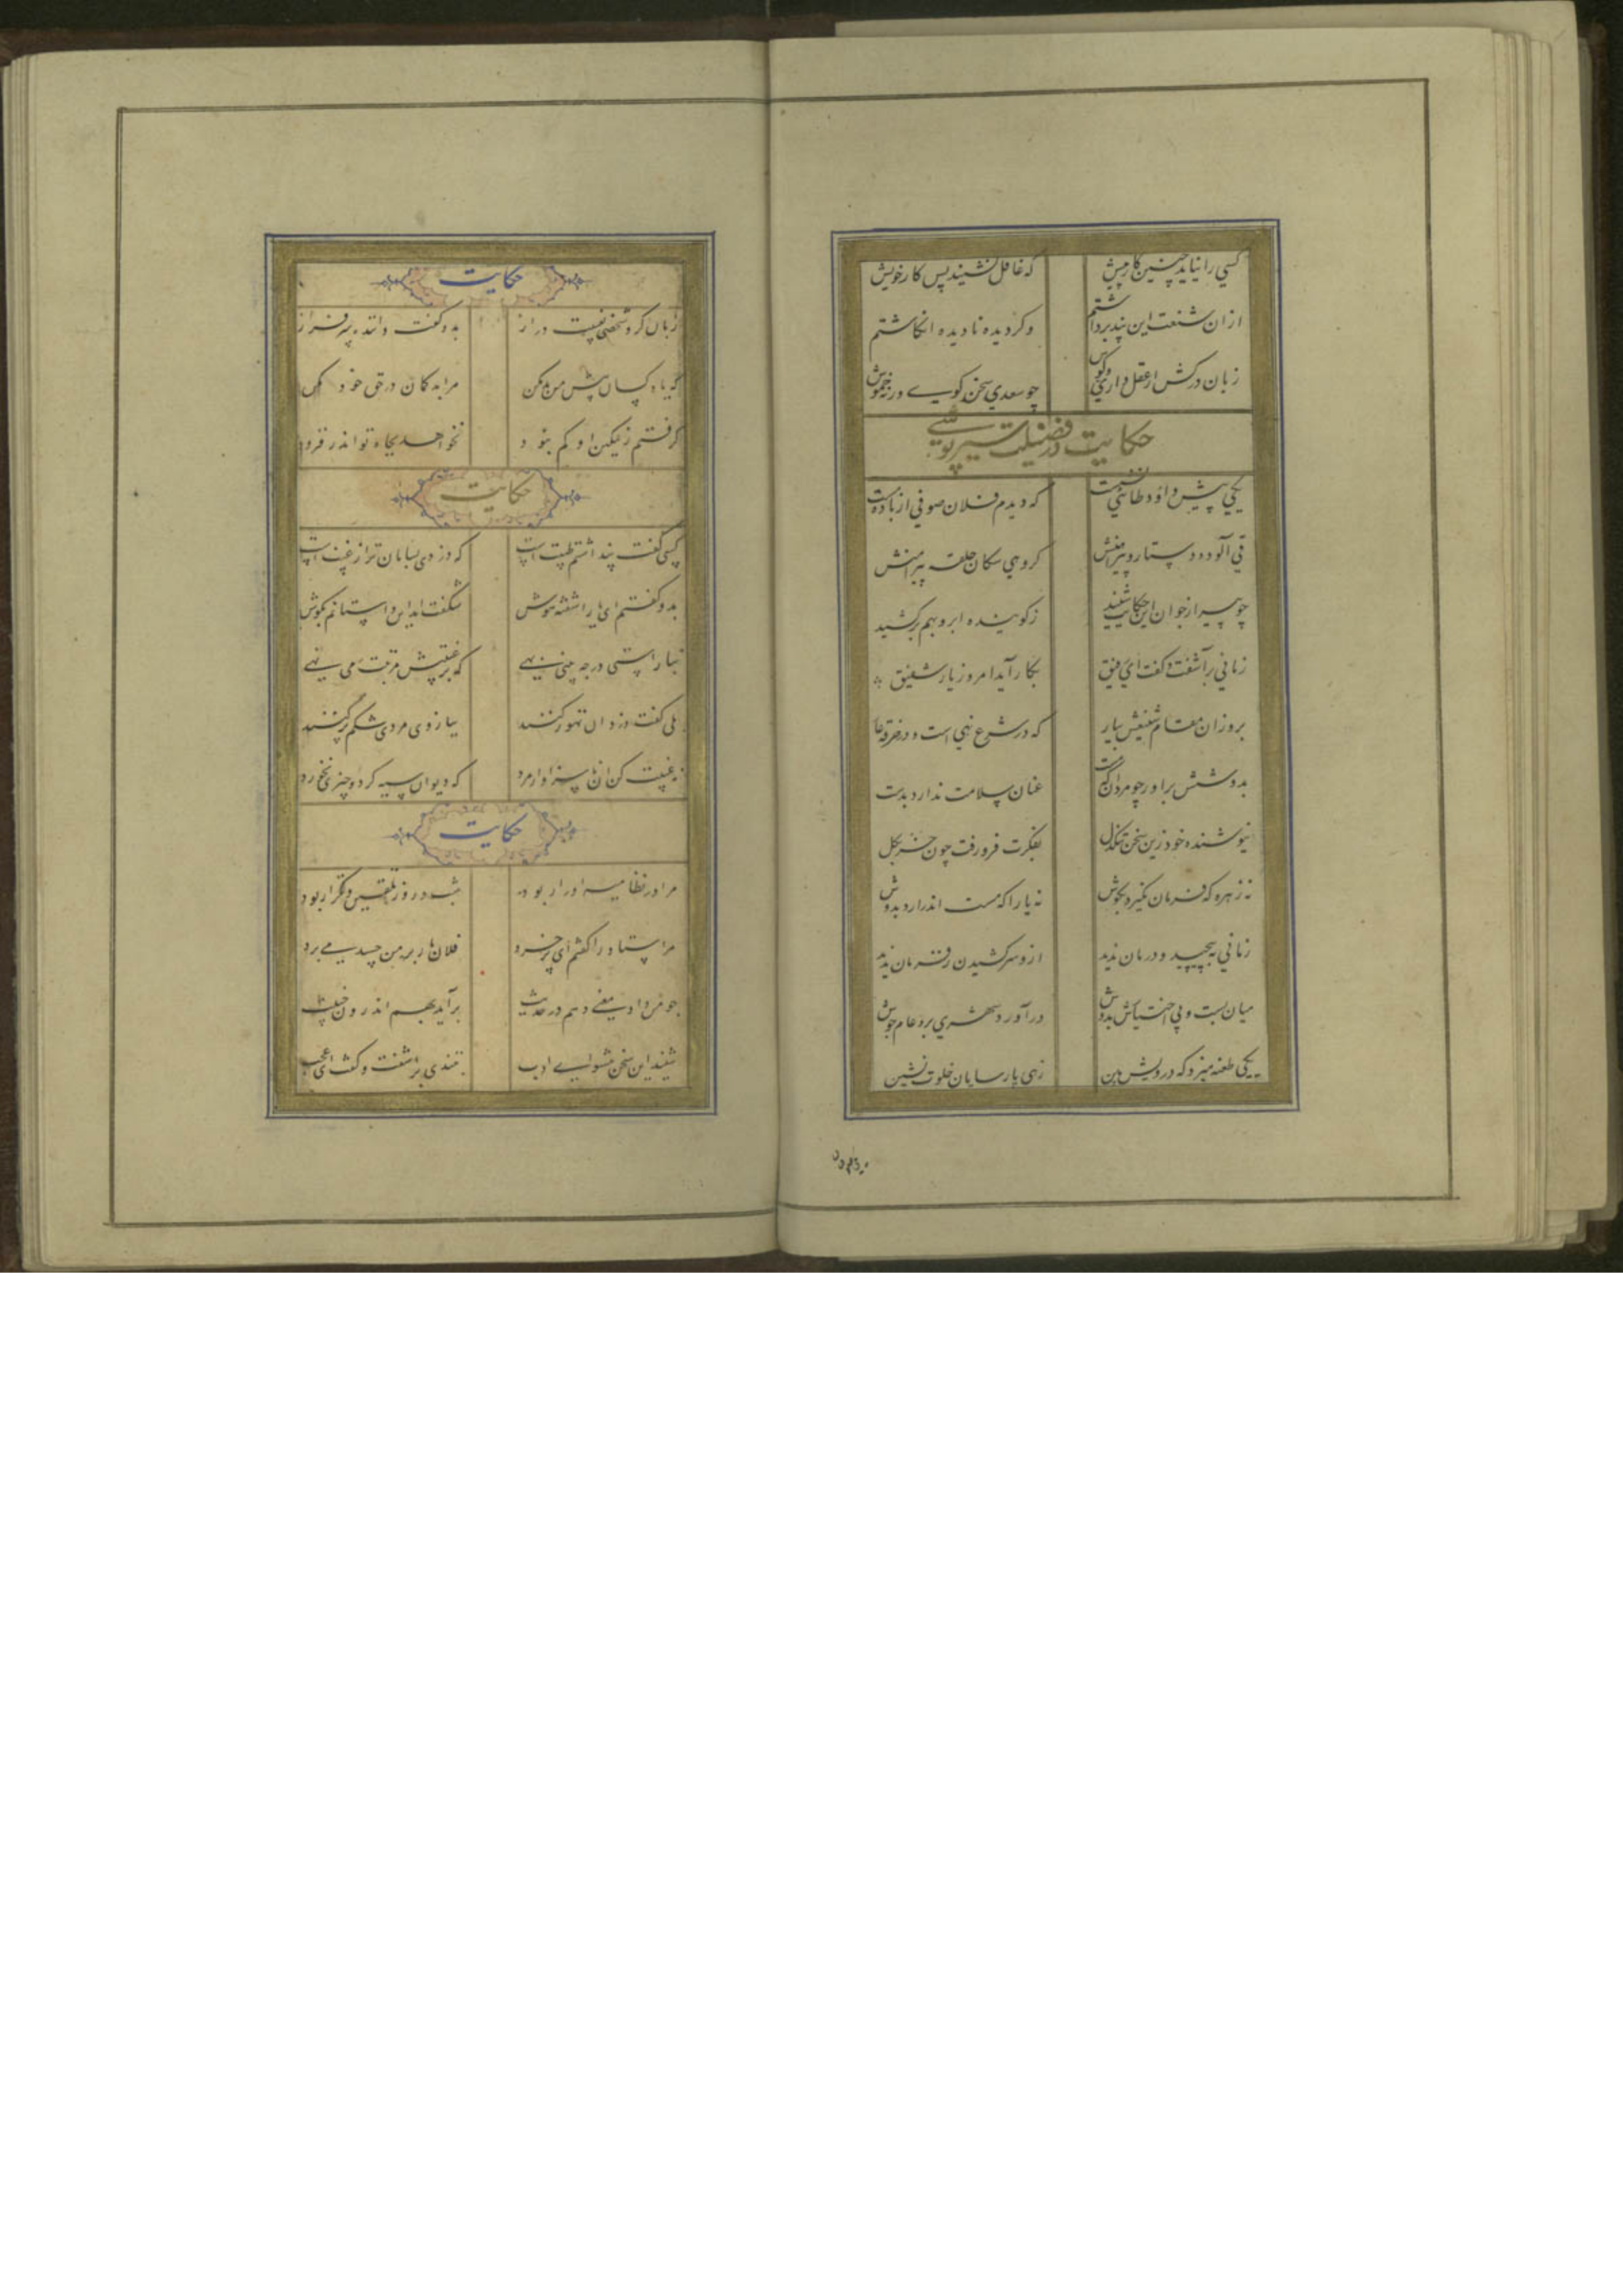 کسی را نیاید چنین کار پیش که غافل نشیند پس کار خویش
ازان شنعت این پند برداشتم وگر دیده نادیده انگاشتم
زبان درکش ار عقل داری و گوش چو سعدی سخن گوی ورنه خموش
حکایت در فضیلت ستر پوشی
یکی پیش داود طائی نشست که دیدم فلان صوفی از باده مست
قی آلوده دستار و پیراهنش گروهی سگان حلقه پیرامنش
چو پیر از جوان این حکایت شنید ز گوینده ابرو بهم برکشید
زمانی برآشفت و گفت ای رفیق بکار آید امروز یار شفیق
برو زان مقام شنیعش بیار که در شرع نهی است و در خرقه عار
بدوشش براور چو مردان که مست عنان سلامت ندارد بدست
نیوشنده خود زین سخن تنگدل بفکرت فرو رفت چون خر بگل
نه زهره که فرمان نگیرد بگوش نه یارا که مست اندرارد بدوش
زمانی بپیچید و درمان ندید ازو سر کشیدن ز فرمان ندید
میان بست و بی اختیارش بدوش درآورد و شهری برو عام جوش
یکی طعنه میزد که درویش بین زهی پارسایان خلوت نشین
حکایت
زبان کرد شخصی بغیبت دراز بدو گفت داننده سرفراز
که یاد کسان پیش من بد مکن مرا بد گمان در حق خود مکن
گرفتم ز تمکین او کم ببود نخواهد بجاه تو اندر فزود
حکایت
کسی گفت پنداشتم طیبت است که دزدی بسامان تر از غیبت است
بدو گفتم ای یار اشفته هوش شگفت امد این داستانم بگوش
بناراستی در چه بینی بهی که بر غیبتش مرتبت می نهی
بلی گفت دزدان تهور کنند ببازوی مردی شکم پر کنند
نه غیبت کن ان ناسزاوار مرد که دیوان سیه کرد و چیزی نخورد
حکایت
مرا در نظامیه ادرار بود شب و روز تلقین و تکرار بود
مر استاد را گفتم ای پر خرد فلان یار بر من حسد می برد
چو من داد معنی دهم در حدیث برآید بهم اندرون خبیث
شنید این سخن پیشوای ادب بتندی براشفت و گفت ای عجب